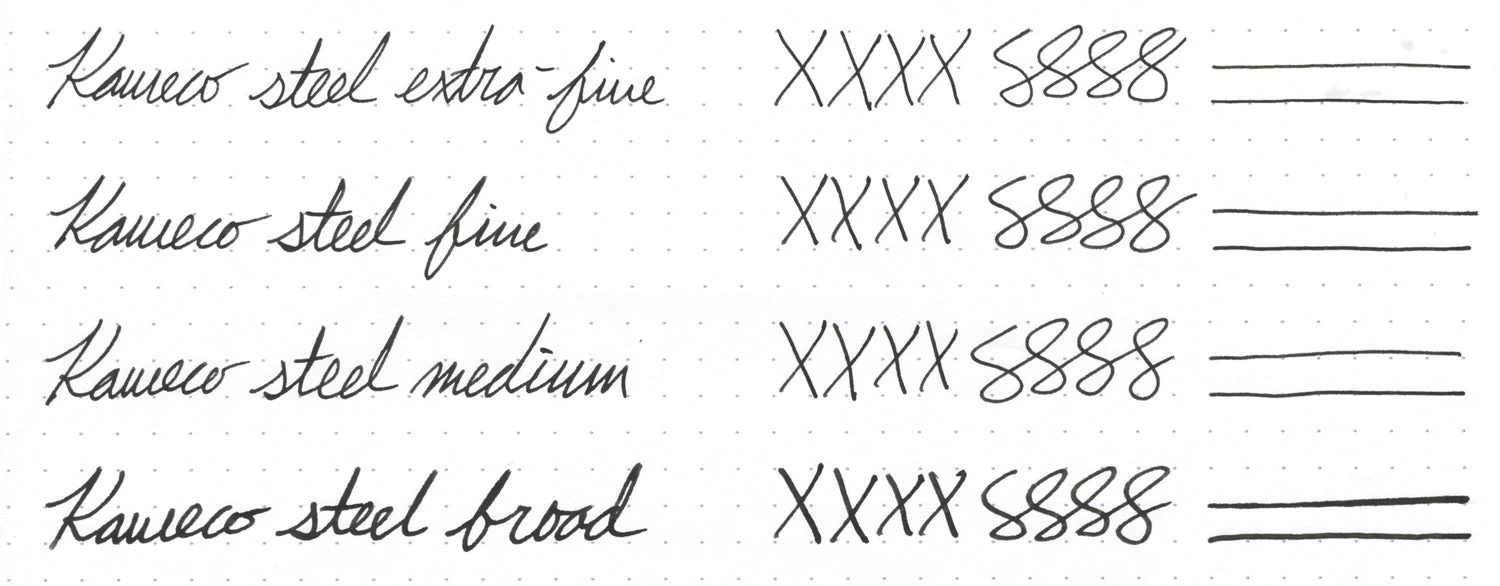 Kaweco steel extra-fine XXXX SSSS
Kaweco steel fine XXXX SSSS
Kaweco steel medium XXXX SSSS
Kaweco steel broad XXXX SSSS